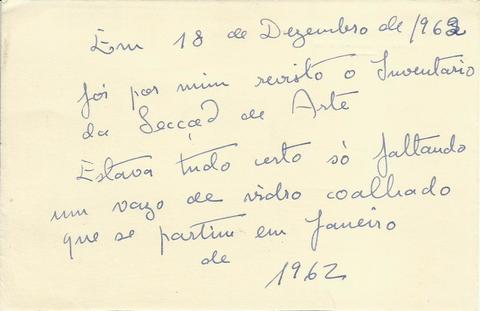 Em 18 de Dezembro de 1962
foi por mim revisto o Inventario
da Secção de Arte
Estava tudo certo só faltando
um vazo de vidro coalhado
que se partiu em Janeiro
de 1962